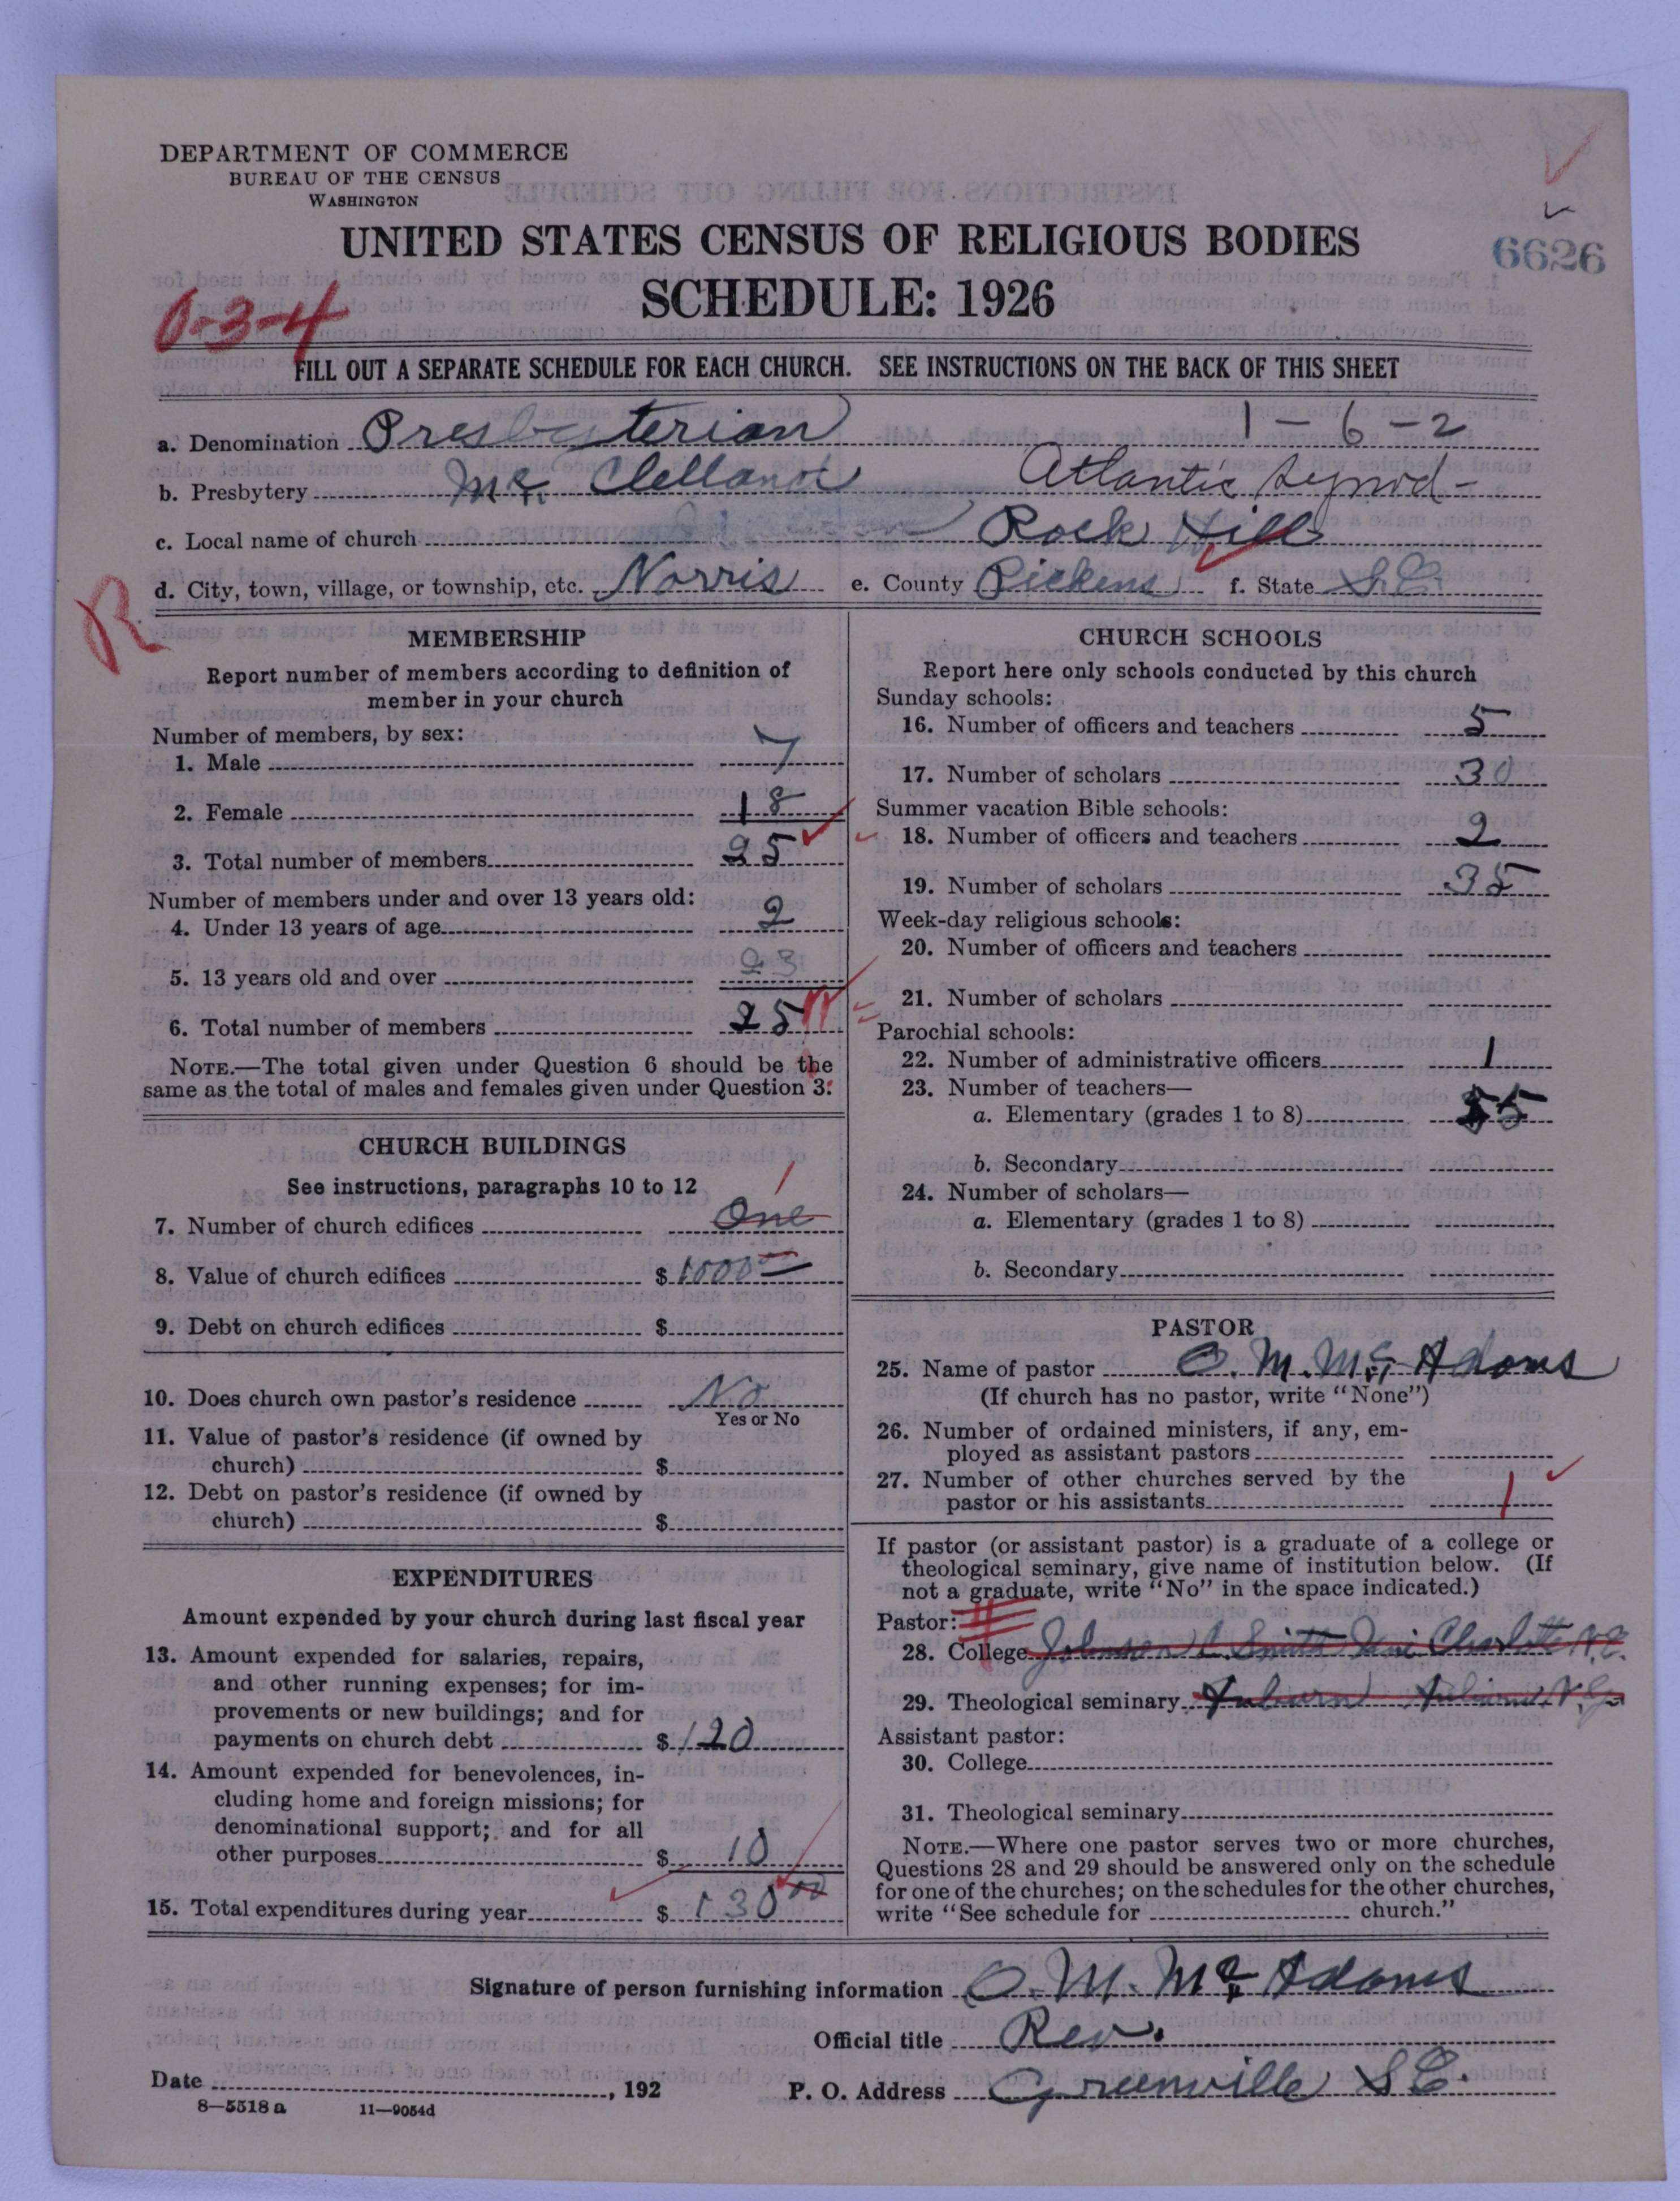 DEPARTMENT OF COMMERCE
BUREAU OF THE CENSUS
WASHINGTON
UNITED STATES CENSUS OF RELIGIOUS BODIES
6626
SCHEDULE: 1926
0-3-4
FILL OUT A SEPARATE SCHEDULE FOR EACH CHURCH. SEE INSTRUCTIONS ON THE BACK OF THIS SHEET
a. Denomination Presbyterian 1-6-2
b. Presbytery Mc. Clelland Atlantic Synod-
c. Local name of church Rock Hill
d. City, town, village, or township, etc. Norris e. County Pickens f. State S.C.
R
MEMBERSHIP
Report number of members according to definition of
member in your church
Number of members, by sex:
1. Male 7
2. Female 18
3. Total number of members 25
Number of members under and over 13 years old:
4. Under 13 years of age 2
5. 13 years old and over 23
6. Total number of members 25
NOTE.—The total given under Question 6 should be the
same as the total of males and females given under Question 3.
CHURCH BUILDINGS
See instructions, paragraphs 10 to 12
1
7. Number of church edifices One
8. Value of church edifices $ 1000
9. Debt on church edifices $
10. Does church own pastor's residence No
Yes or No
11. Value of pastor's residence (if owned by
church) $
12. Debt on pastor's residence (if owned by
church) $
EXPENDITURES
Amount expended by your church during last fiscal year
13. Amount expended for salaries, repairs,
and other running expenses; for im-
provements or new buildings; and for
payments on church debt $ 120
14. Amount expended for benevolences, in-
cluding home and foreign missions; for
denominational support; and for all
other purposes $ 10
15. Total expenditures during year $ 130 00
CHURCH SCHOOLS
Report here only schools conducted by this church
Sunday schools:
16. Number of officers and teachers 5
17. Number of scholars 30
Summer vacation Bible schools:
18. Number of officers and teachers 2
19. Number of scholars 35
Week-day religious schools:
20. Number of officers and teachers
21. Number of scholars
Parochial schools:
22. Number of administrative officers 1
23. Number of teachers—
a. Elementary (grades 1 to 8) 5
b. Secondary
24. Number of scholars—
a. Elementary (grades 1 to 8)
b. Secondary
PASTOR
25. Name of pastor O. M. Mc. Adams
(If church has no pastor, write "None")
26. Number of ordained ministers, if any, em-
ployed as assistant pastors
27. Number of other churches served by the
pastor or his assistants 1
If pastor (or assistant pastor) is a graduate of a college or
theological seminary, give name of institution below. (If
not a graduate, write "No" in the space indicated.)
Pastor:
28. College Johnson C. Smith Uni Charlotte N.C.
29. Theological seminary Auburn Auburn N.Y.
Assistant pastor:
30. College
31. Theological seminary
NOTE.—Where one pastor serves two or more churches,
Questions 28 and 29 should be answered only on the schedule
for one of the churches; on the schedules for the other churches,
write "See schedule for church."
Signature of person furnishing information O. M. Mc. Adams
Official title Rev.
Date , 192 P. O. Address Greenville S.C.
8—5518 a 11—9054d